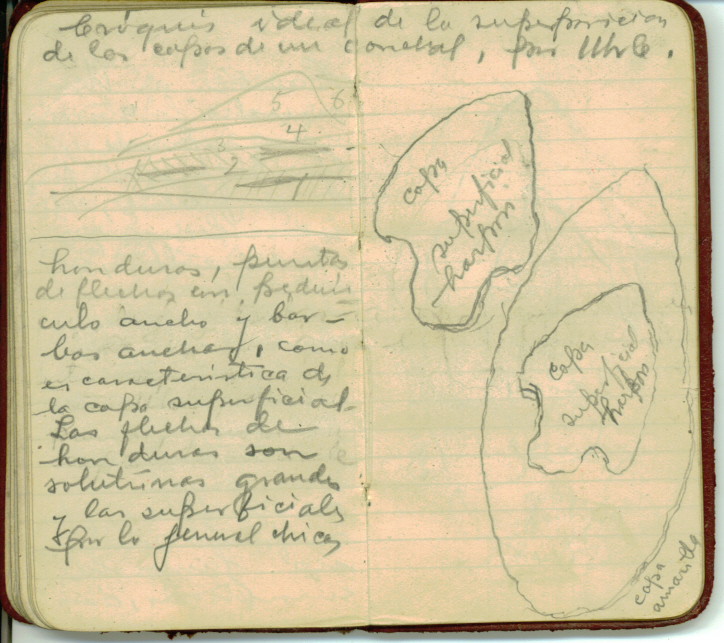 Cróquis ideal de la superposicion
de las capas de un conchal, por Uhle.
5 6
4
3
2
1
honduras, puntas
de flechas con pedun-
culo ancho y bar-
bas anchas, como
es característica de
la capa superficial.
Las flechas de
honduras son
solutrinas grandes
y las superficiales
por lo general chicas
capa
superficial
harpón
capa
superficial
harpón
capa
amarilla